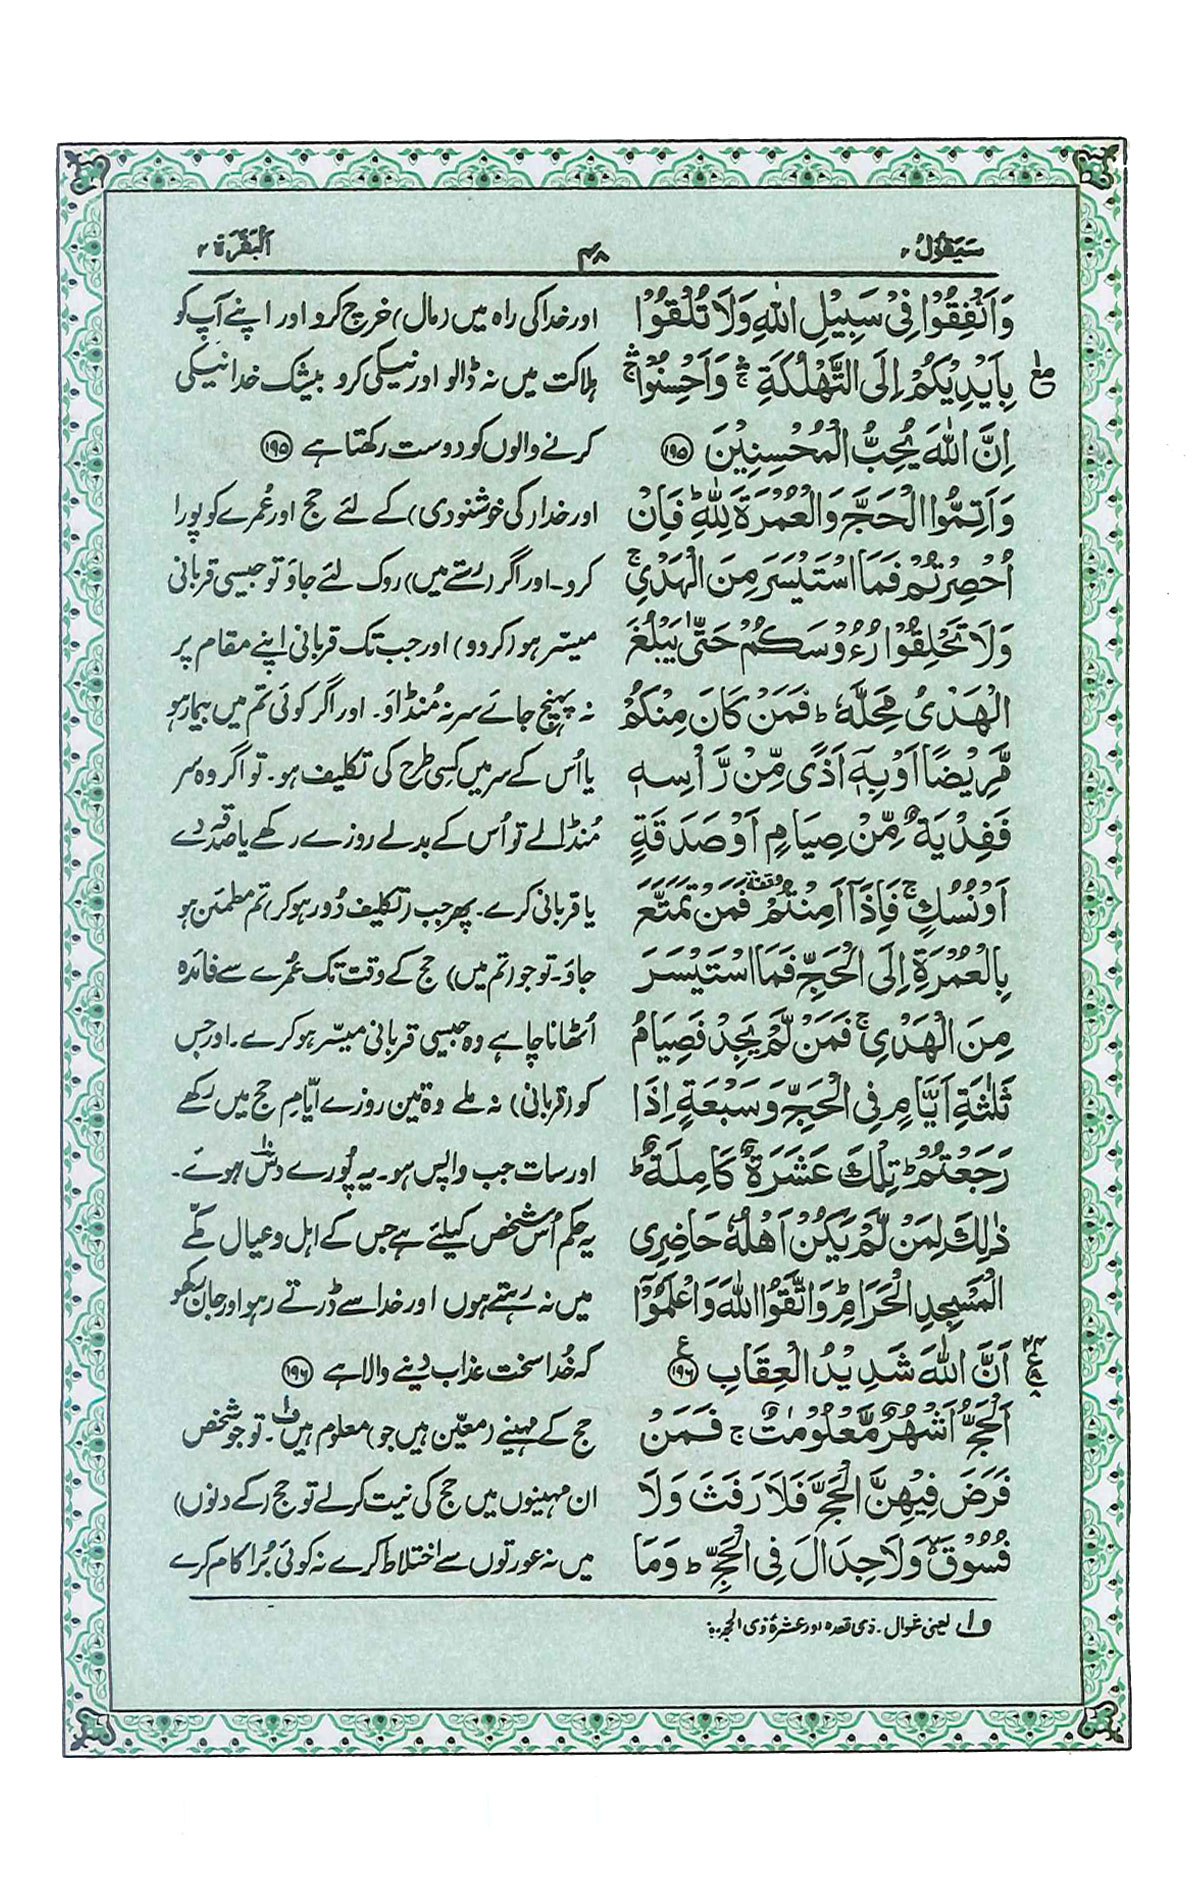 سَيَقُوۡلُ ٢
٤٨
اَلۡبَقَرَة ٢
وَاَنۡفِقُوۡا فِىۡ سَبِيۡلِ اللّٰهِ وَلَا تُلۡقُوۡا
بِاَيۡدِيۡكُمۡ اِلَى التَّهۡلُكَةِ ۛۚ وَاَحۡسِنُوۡا ۛۚ
اِنَّ اللّٰهَ يُحِبُّ الۡمُحۡسِنِيۡنَ ١٩٥
وَاَتِمُّوا الۡحَجَّ وَالۡعُمۡرَةَ لِلّٰهِ ؕ فَاِنۡ
اُحۡصِرۡتُمۡ فَمَا اسۡتَيۡسَرَ مِنَ الۡهَدۡىِ ۚ
وَلَا تَحۡلِقُوۡا رُءُوۡسَكُمۡ حَتّٰى يَبۡلُغَ
الۡهَدۡىُ مَحِلَّهٗ ؕ فَمَنۡ كَانَ مِنۡكُمۡ
مَّرِيۡضًا اَوۡ بِهٖۤ اَذًى مِّنۡ رَّاۡسِهٖ
فَفِدۡيَةٌ مِّنۡ صِيَامٍ اَوۡ صَدَقَةٍ
اَوۡ نُسُكٍ ۚ فَاِذَاۤ اَمِنۡتُمۡ وقفة فَمَنۡ تَمَتَّعَ
بِالۡعُمۡرَةِ اِلَى الۡحَجِّ فَمَا اسۡتَيۡسَرَ
مِنَ الۡهَدۡىِ ۚ فَمَنۡ لَّمۡ يَجِدۡ فَصِيَامُ
ثَلٰثَةِ اَيَّامٍ فِى الۡحَجِّ وَسَبۡعَةٍ اِذَا
رَجَعۡتُمۡ ؕ تِلۡكَ عَشَرَةٌ كَامِلَةٌ ؕ
ذٰلِكَ لِمَنۡ لَّمۡ يَكُنۡ اَهۡلُهٗ حَاضِرِى
الۡمَسۡجِدِ الۡحَرَامِ ؕ وَاتَّقُوا اللّٰهَ وَاعۡلَمُوۡۤا
اَنَّ اللّٰهَ شَدِيۡدُ الۡعِقَابِ ١٩٦ ع
اَلۡحَجُّ اَشۡهُرٌ مَّعۡلُوۡمٰتٌ ۚ فَمَنۡ
فَرَضَ فِيۡهِنَّ الۡحَجَّ فَلَا رَفَثَ وَلَا
فُسُوۡقَ ۙ وَلَا جِدَالَ فِى الۡحَجِّ ؕ وَمَا
اور خدا کی راہ میں (مال) خرچ کرو اور اپنے آپ کو
ہلاکت میں نہ ڈالو اور نیکی کرو بیشک خدا نیکی
کرنے والوں کو دوست رکھتا ہے ١٩٥
اور خدا (کی خوشنودی) کے لئے حج اور عُمرے کو پورا
کرو۔ اور اگر (رستے میں) روک لئے جاؤ تو جیسی قربانی
میسّر ہو (کردو) اور جب تک قربانی اپنے مقام پر
نہ پہنچ جائے سر نہ مُنڈاؤ۔ اور اگر کوئی تم میں بیمار ہو
یا اُس کے سر میں کسِی طرح کی تکلیف ہو۔ تو اگر وہ سر
مُنڈالے تو اُس کے بدلے روزے رکھے یا صدقہ دے
یا قربانی کرے۔ پھر جب (تکلیف دُور ہوکر) تم مطمئن ہو
جاؤ۔ تو جو (تم میں) حج کے وقت تک عُمرے سے فائدہ
اُٹھانا چاہے وہ جیسی قربانی میسّر ہو کرے۔ اور جس
کو (قربانی) نہ ملے وہ تین روزے ایّامِ حج میں رکھے
اور سات جب واپس ہو۔ یہ پُورے دسؔ ہوئے۔
یہ حکم اُس شخص کیلئے ہے جس کے اہل و عیال مکّے
میں نہ رہتے ہوں اور خدا سے ڈرتے رہو اور جان رکھو
کہ خُدا سخت عذاب دینے والا ہے ١٩٦
حج کے مہینے (معیّن ہیں جو) معلوم ہیں ف۱۔ تو جو شخص
ان مہینوں میں حج کی نیت کرلے تو حج (کے دنوں)
میں نہ عورتوں سے اختلاط کرے نہ کوئی بُرا کام کرے
مع
٢٤ ع ٨
ف۱ یعنی شوال۔ ذی قعدہ اور عشرۂ ذی الحجہ